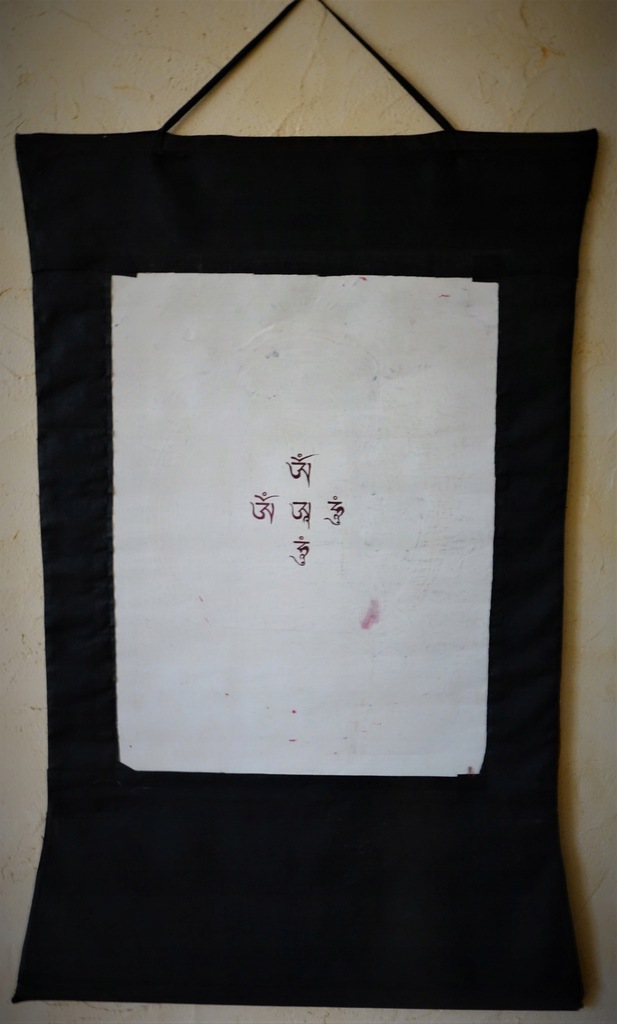 ཨོཾ
ཨོཾ ཨཱ ཧཱུྃ
ཧཱུྃ